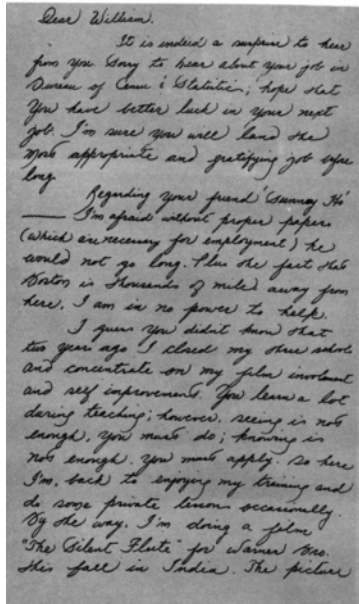 Dear William,
It is indeed a surprise to hear
from you. Sorry to hear about your job in
Bureau of Census & Statistics; hope that
you have better luck in your next
job. I'm sure you will land the
most appropriate and gratifying job before
long
Regarding your friend "Sunnay Ho"
— I'm afraid without proper papers
(which are necessary for employment) he
would not go long. Plus the fact that
Boston is thousands of mile away from
here, I am in no power to help.
I guess you didn't know that
two years ago I closed my three schools
and concentrate on my film involvment
and self improvement. You learn a lot
during teaching; however, seeing is not
enough, you must do; knowing is
not enough, you must apply. So here
I'm, back to enjoying my training and
do some private lessons occasionally.
By the way, I'm doing a film
"The Silent Flute" for Warner Bro.
this fall in India. The picture